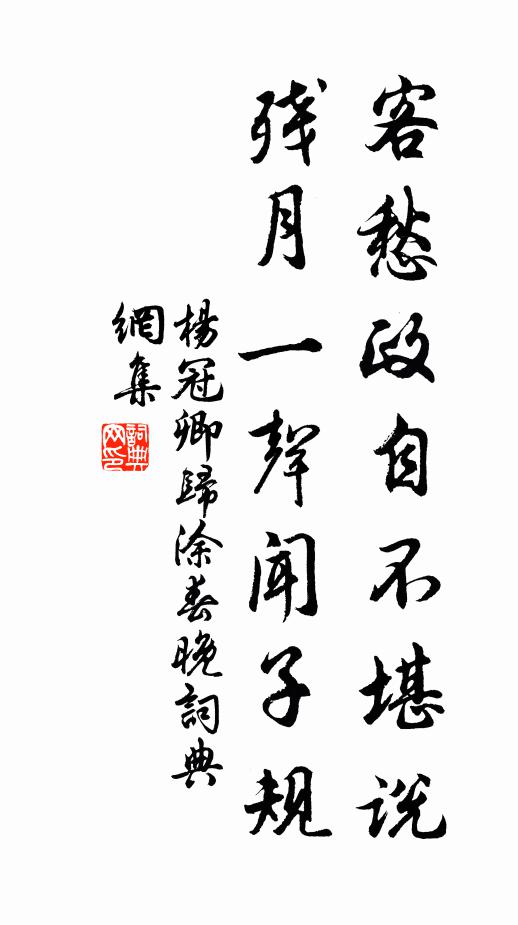 客愁政自不堪說
殘月一聲聞子規
楊冠卿歸涂春晚詞典
網集
詞典網印